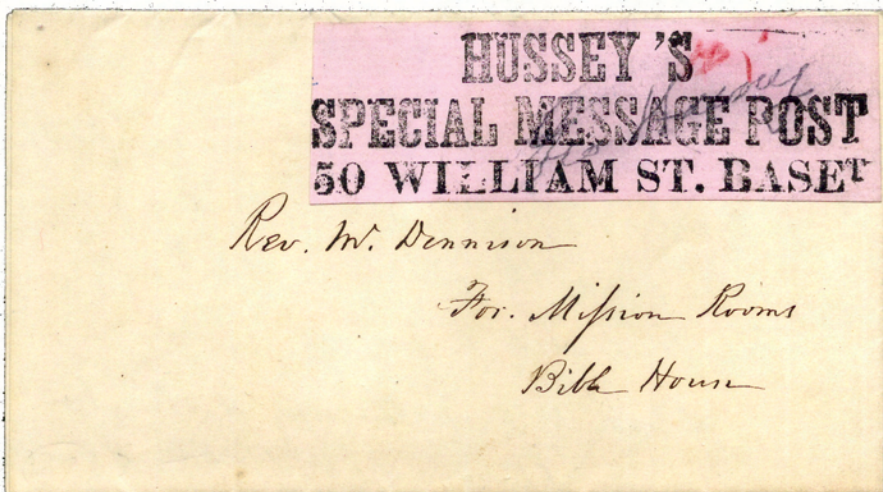 HUSSEY'S
SPECIAL MESSAGE POST
50 WILLIAM ST. BASET
Rev. Mr. Dennison
For. Mission Rooms
Bible House